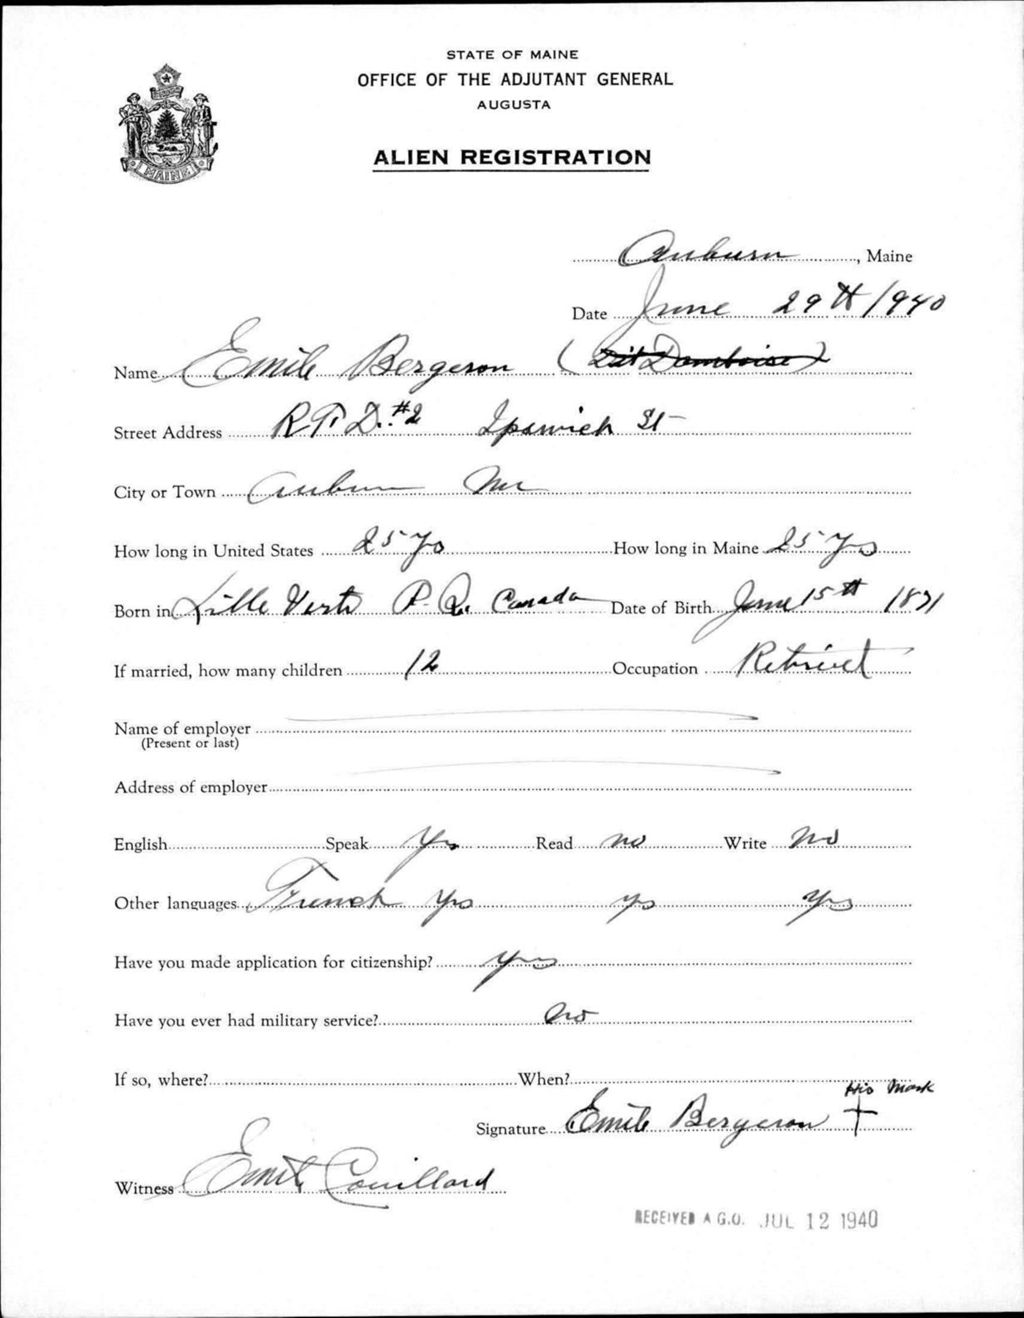 STATE OF MAINE
OFFICE OF THE ADJUTANT GENERAL
AUGUSTA
ALIEN REGISTRATION
MAINE
Auburn, Maine
Date June 29th 1940
Name Emile Bergeron (Dit Damboise)
Street Address R.F.D. #2 Ipswich St
City or Town Auburn Me
How long in United States 25 yrs How long in Maine 25 yrs
Born in Lille Verte P.Q. Canada Date of Birth June 15th 1871
If married, how many children 12 Occupation Retired
Name of employer
(Present or last)
Address of employer
English Speak Yes Read no Write No
Other languages French yes yes yes
Have you made application for citizenship? yes
Have you ever had military service? no
If so, where? When?
His Mark
Signature Emile Bergeron +
Witness Emile Couillard
RECEIVED A.G.O. JUL 12 1940